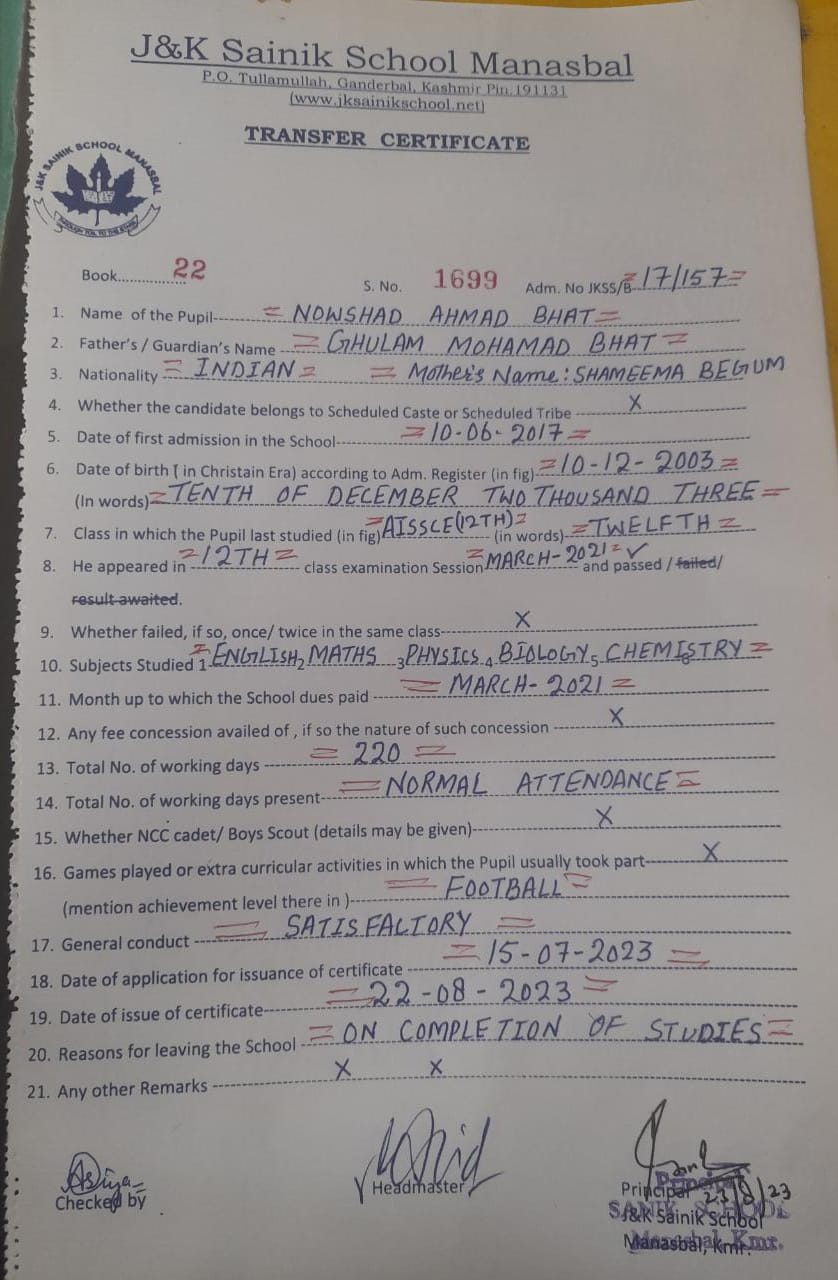 J&K Sainik School Manasbal
P.O. Tullamullah, Ganderbal, Kashmir Pin.191131
(www.jksainikschool.net)
TRANSFER CERTIFICATE
J&K SAINIK SCHOOL MANASBAL
Book............... 22 S. No. 1699 Adm. No JKSS/B 17/157
1. Name of the Pupil NOWSHAD AHMAD BHAT
2. Father's / Guardian's Name GHULAM MOHAMAD BHAT
3. Nationality INDIAN Mother's Name: SHAMEEMA BEGUM
4. Whether the candidate belongs to Scheduled Caste or Scheduled Tribe X
5. Date of first admission in the School 10-06-2017
6. Date of birth ( in Christain Era) according to Adm. Register (in fig) 10-12-2003
(In words) TENTH OF DECEMBER TWO THOUSAND THREE
7. Class in which the Pupil last studied (in fig) AISSCE(12TH) (in words) TWELFTH
8. He appeared in 12TH class examination Session MARCH-2021 and passed / failed/
result awaited.
9. Whether failed, if so, once/ twice in the same class X
10. Subjects Studied 1 ENGLISH 2 MATHS 3 PHYSICS 4 BIOLOGY 5 CHEMISTRY
11. Month up to which the School dues paid MARCH-2021
12. Any fee concession availed of , if so the nature of such concession X
13. Total No. of working days 220
14. Total No. of working days present NORMAL ATTENDANCE
15. Whether NCC cadet/ Boys Scout (details may be given) X
16. Games played or extra curricular activities in which the Pupil usually took part X
(mention achievement level there in ) FOOTBALL
17. General conduct SATISFACTORY
18. Date of application for issuance of certificate 15-07-2023
19. Date of issue of certificate 22-08-2023
20. Reasons for leaving the School ON COMPLETION OF STUDIES
21. Any other Remarks X X
Checked by Headmaster Principal 23/8/23
J&K Sainik School
Manasbal, Kmr.